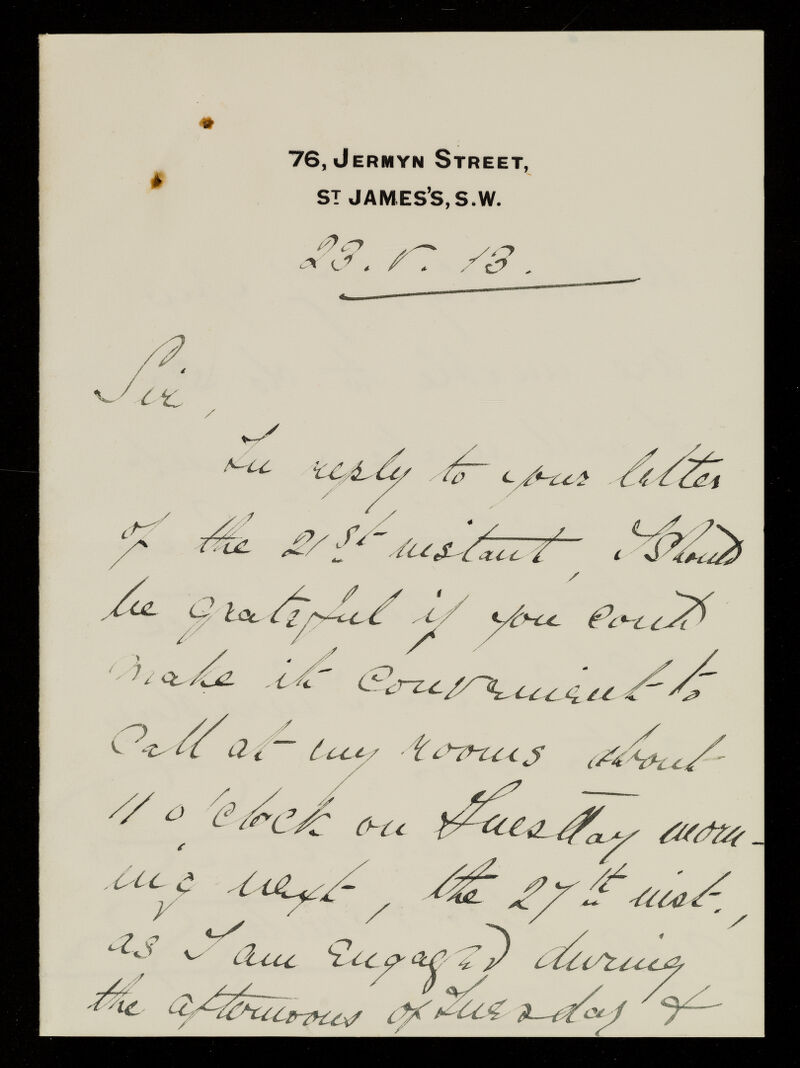 76, JERMYN STREET,
ST JAMES'S, S.W.
23. V. 13.
Sir,
In reply to your letter
of the 21st instant, I should
be grateful if you could
make it convenient to
call at my rooms about
11 o'clock on Tuesday morn-
ing next, the 27th inst.,
as I am engaged during
the afternoons of Tuesday &